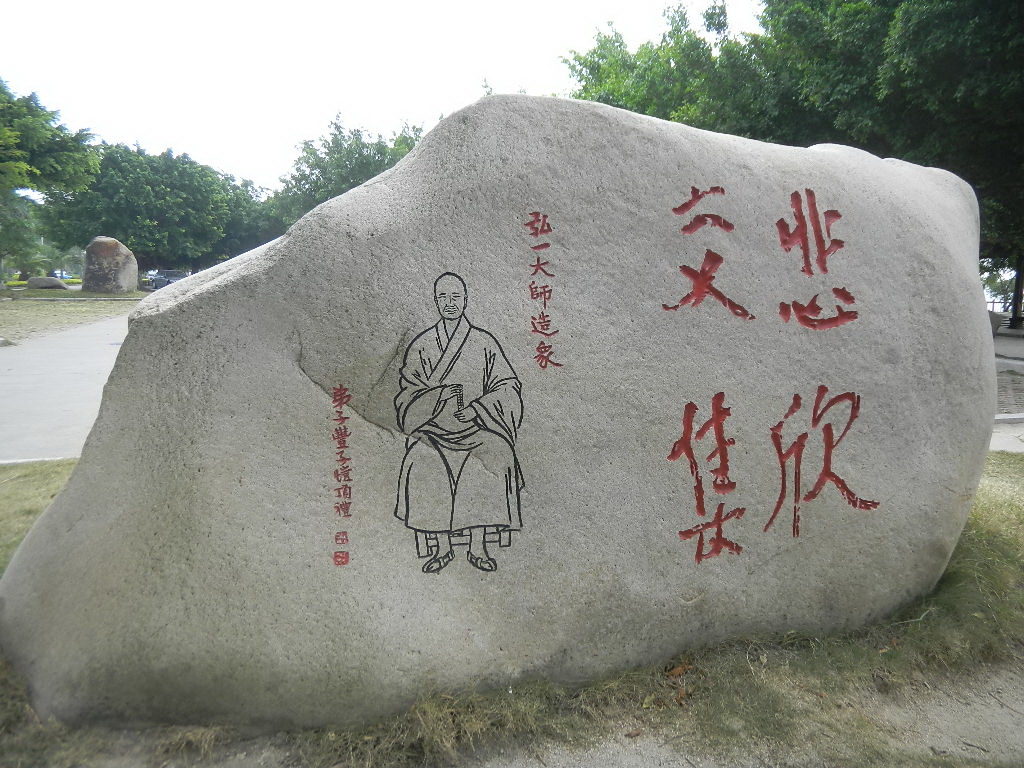 悲欣
交集
弘一大師造象
弟子豐子愷頂禮